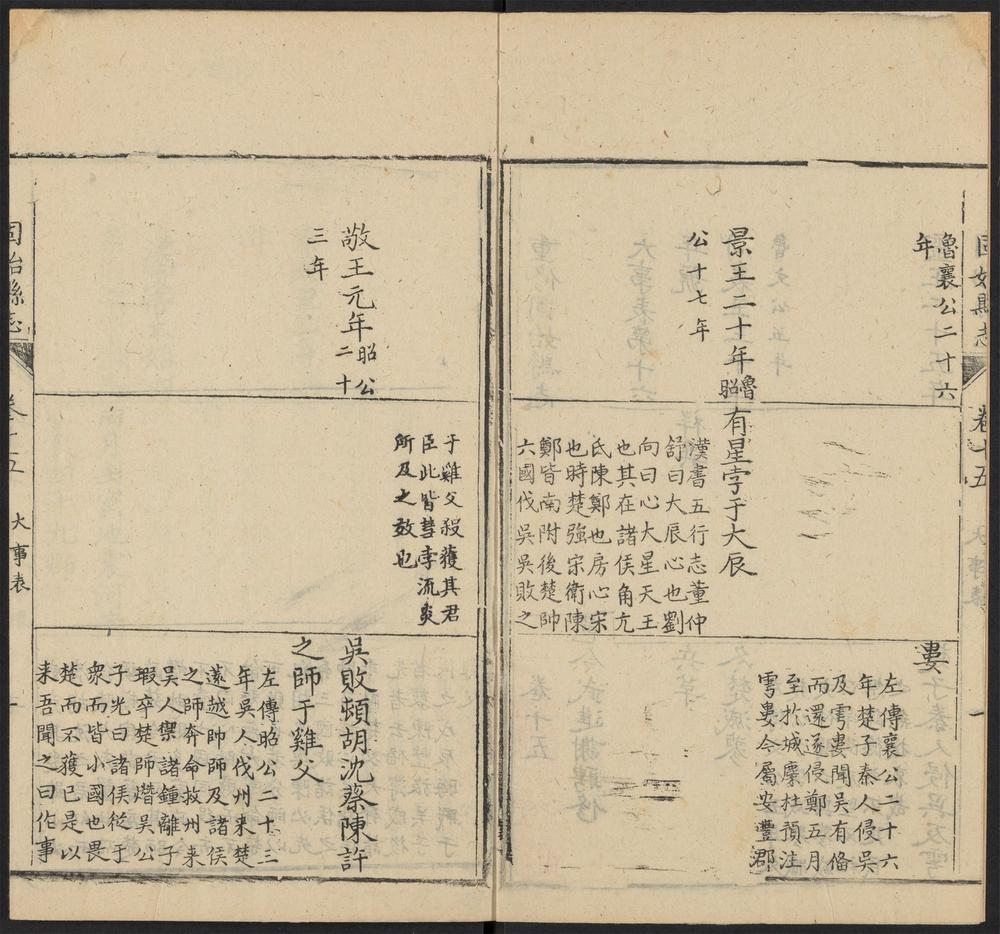 固始縣志
卷十五
大事表
一
魯襄公二十六
年
景王二十年魯昭
公十七年
有星孛于大辰
漢書五行志董仲
舒曰大辰心也劉
向曰心大星天王
也其在諸侯角亢
氐陳鄭也房心宋
也時楚強宋衛陳
鄭皆南附後楚帥
六國伐吳吳敗之
婁
左傳襄公二十六
年楚子秦人侵吳
及雩婁聞吳有備
而還遂侵鄭五月
至於城麇杜預注
雩婁今屬安豐郡
敬王元年昭公二十
三年
于雞父殺獲其君
臣此皆彗孛流炎
所及之效也
吳敗頓胡沈蔡陳許
之師于雞父
左傳昭公二十三
年吳人伐州來楚
薳越帥師及諸侯
之師奔命救州來
吳人禦諸鍾離子
瑕卒楚師熸吳公
子光曰諸侯從于
衆而皆小國也畏
楚而不獲已是以
来吾聞之曰作事
固始縣志
卷十五
大事表